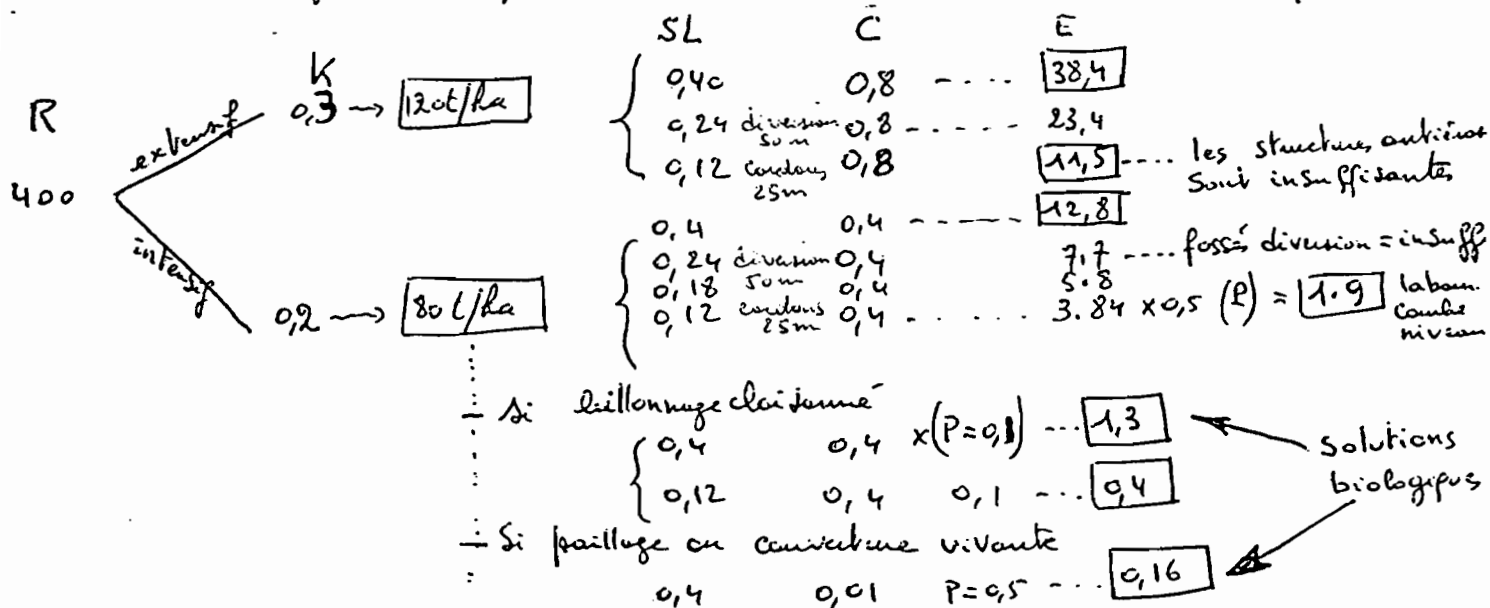 SL C E
K
R
400
extensif 0,3 → 120t/ha
0,40 0,8 - .... 38,4
0,24 diversion 50 m 0,8 ..... 23,4
0,12 cordons 25m 0,8 11,5 .... les structures antiéros sont insuffisantes
intensif 0,2 → 80 t/ha
0,4 0,4 ------ 12,8
0,24 diversion 50m 0,4 7.7 .... fossé diversion = insuff
0,18 0,4 5.8
0,12 cordons 25m 0,4 ..... 3.84 x 0,5 (P) = 1.9 labour. courbe niveau
- Si billonnage cloisonné
0,4 0,4 x (P=0,1) ... 1,3
0,12 0,4 0,1 ... 0,4
solutions
biologiques
- Si paillage ou couverture vivante
0,4 0,01 P=0,5 ... 0,16